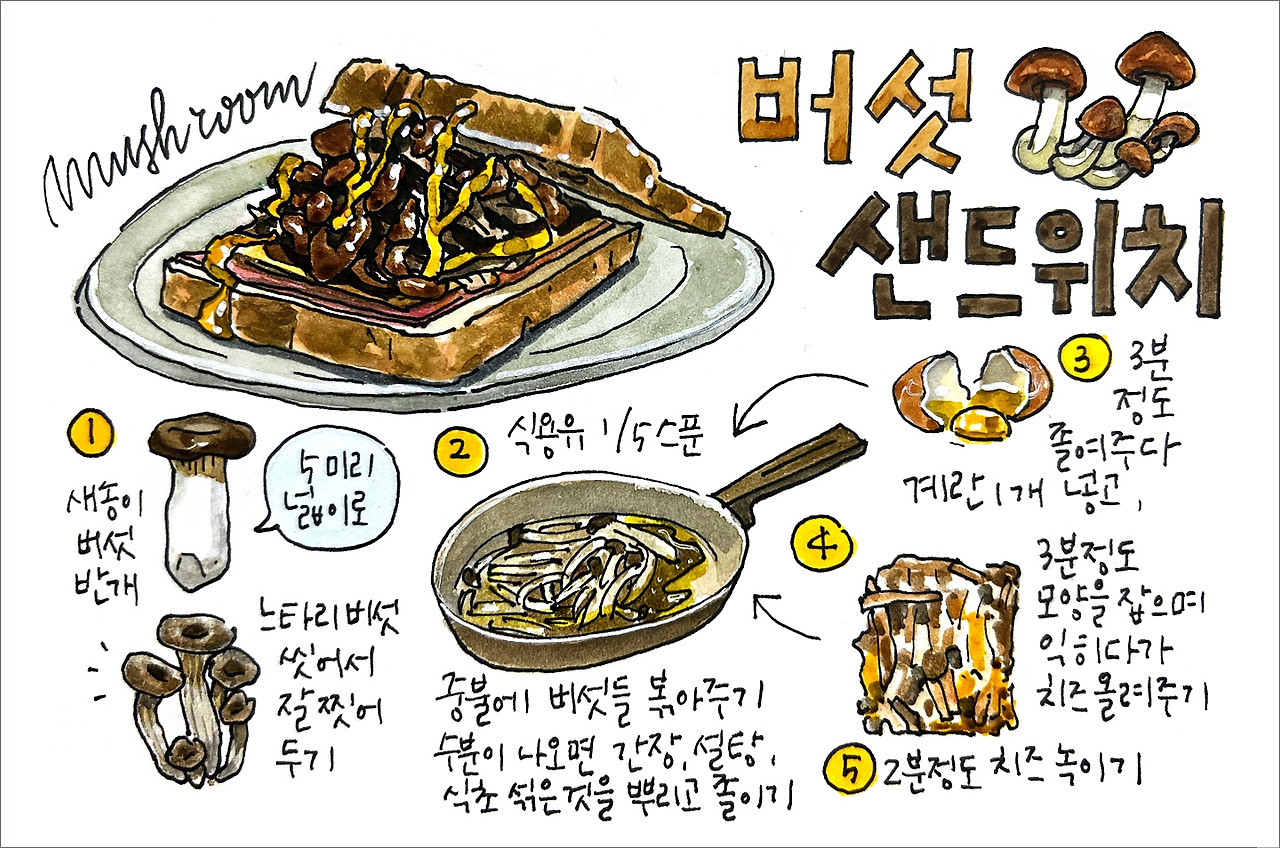 mushroom
버섯
샌드위치
1
새송이
버섯
반개
5미리
넓이로
느타리버섯
씻어서
잘 찢어
두기
2
식용유 1/5스푼
중불에 버섯들 볶아주기
수분이 나오면 간장, 설탕,
식초 섞은것을 뿌리고 졸이기
3
3분
정도
졸여주다
계란 1개 넣고,
4
3분정도
모양을 잡으며
익히다가
치즈 올려주기
5
2분정도 치즈 녹이기